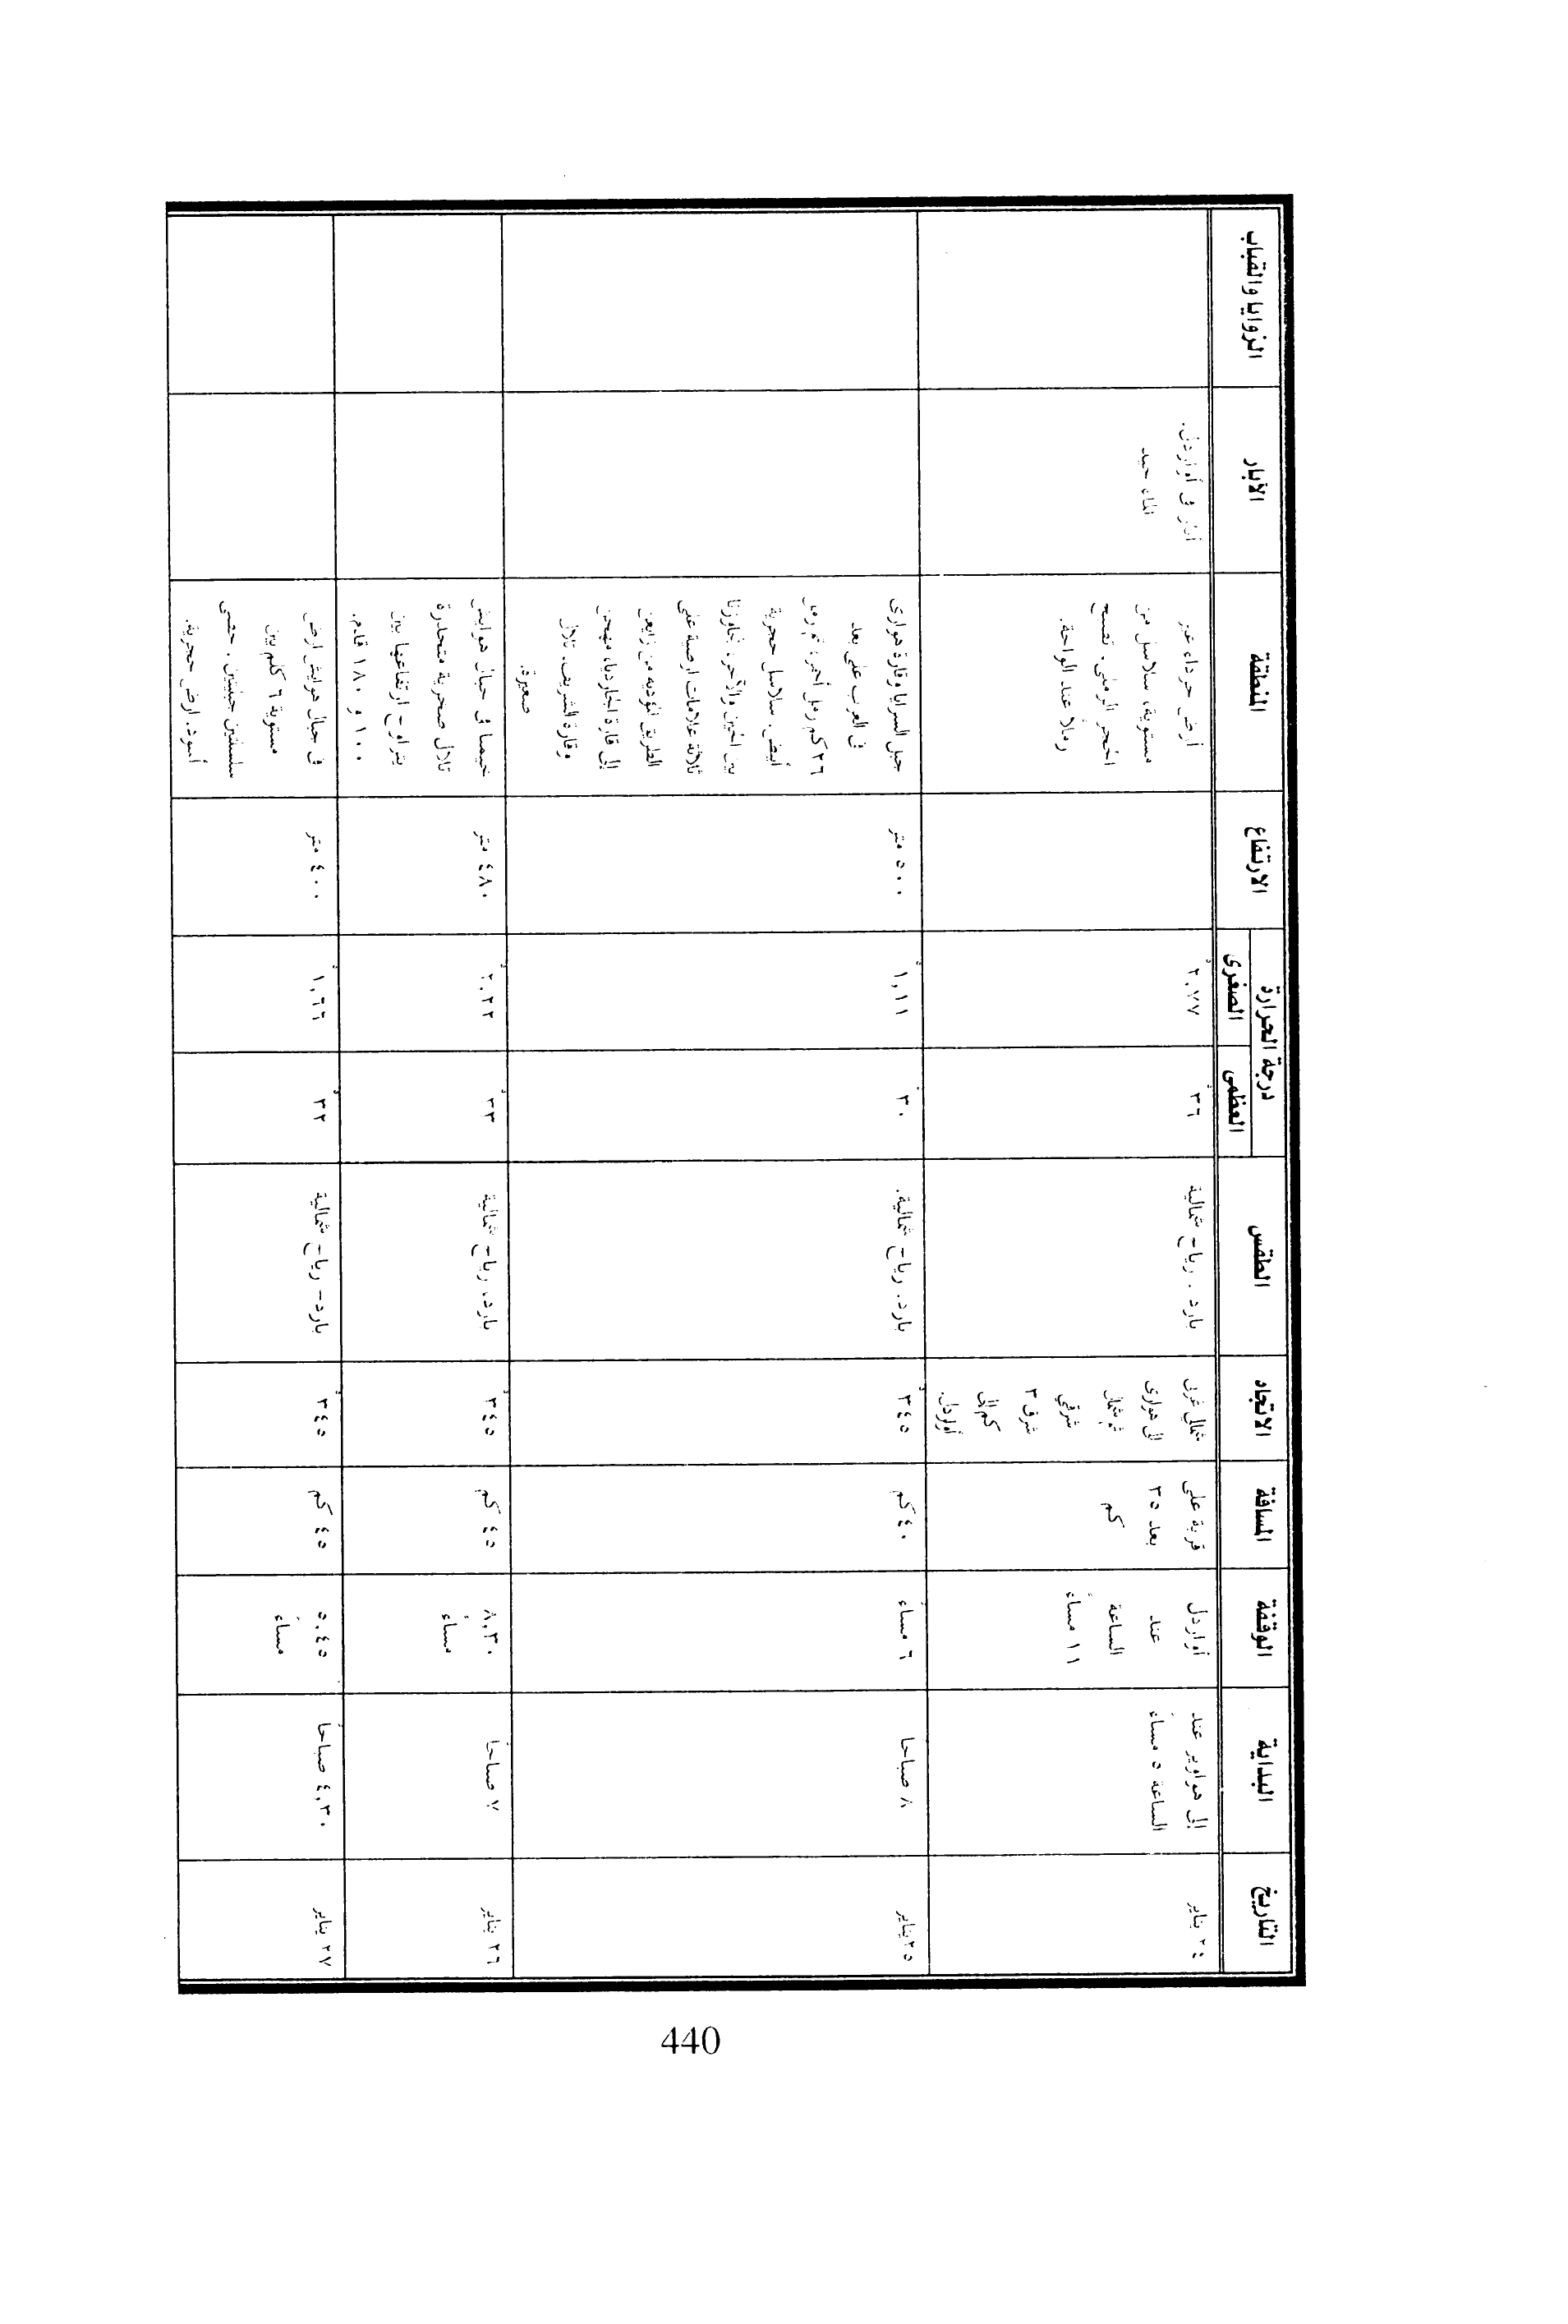 التاريخ
البداية
الوقفة
المسافة
الاتجاه
الطقس
درجة الحرارة
العظمى
الصغرى
الارتفاع
المنطقة
الآبار
الزوايا والقباب
٢٤ يناير
إلى هواوير عند
الساعة ٥ مساءً
أواردل
عند
الساعة
١١ مساءً
قربة على
بعد ٣٥
كم
شمالي غربى
إلى هوارى
ثم شمال
شرقي
شرق ٣
كم إلى
أواردل.
بارد . رياح شمالية
٣٦°
٢,٧٧°
أرض جرداء غير
مستوية، سلاسل من
الحجر الرملى. تصبح
رملاً عند الواحة.
آبار فى أواردل.
الماء جيد
٢٥ يناير
٨ صباحا
٦ مساءً
٤٠ كم
٣٤٥°
بارد. رياح شمالية.
٣٠°
١,١١°
٥٠٠ متر
جبل السرايا وقارة هوارى
فى الغرب على بعد
٢٦ كم رمل أحمر، ثم رمل
أبيض. سلاسل حجرية
بين الحين والآخر، تجاوزنا
ثلاثة علامات ارضية على
الطريق المؤدية من
إلى قارة
وقارة الشريف. تلال
صغيرة.
٢٦ يناير
٧ صباحاً
٨,٣٠
مساءً
٤٥ كم
٣٤٥°
بارد، رياح شمالية
٣٣°
٢,٢٢°
٤٨٠ متر
خيمنا فى جبال هوايش
تلال صخرية منحدرة
يتراوح ارتفاعها بين
١٠٠ و ١٨٠ قادم.
٢٧ يناير
٤,٣٠ صباحاً
٥,٤٥
مساءً
٤٥ كم
٣٤٥°
بارد- رياح شمالية
٣٢°
١,٦٦°
٤٠٠ متر
فى جبال هوايش ارض
مستوية ٦ كلم بين
سلسلتين جبليتين . حصى
أسود. ارض حجرية.
440